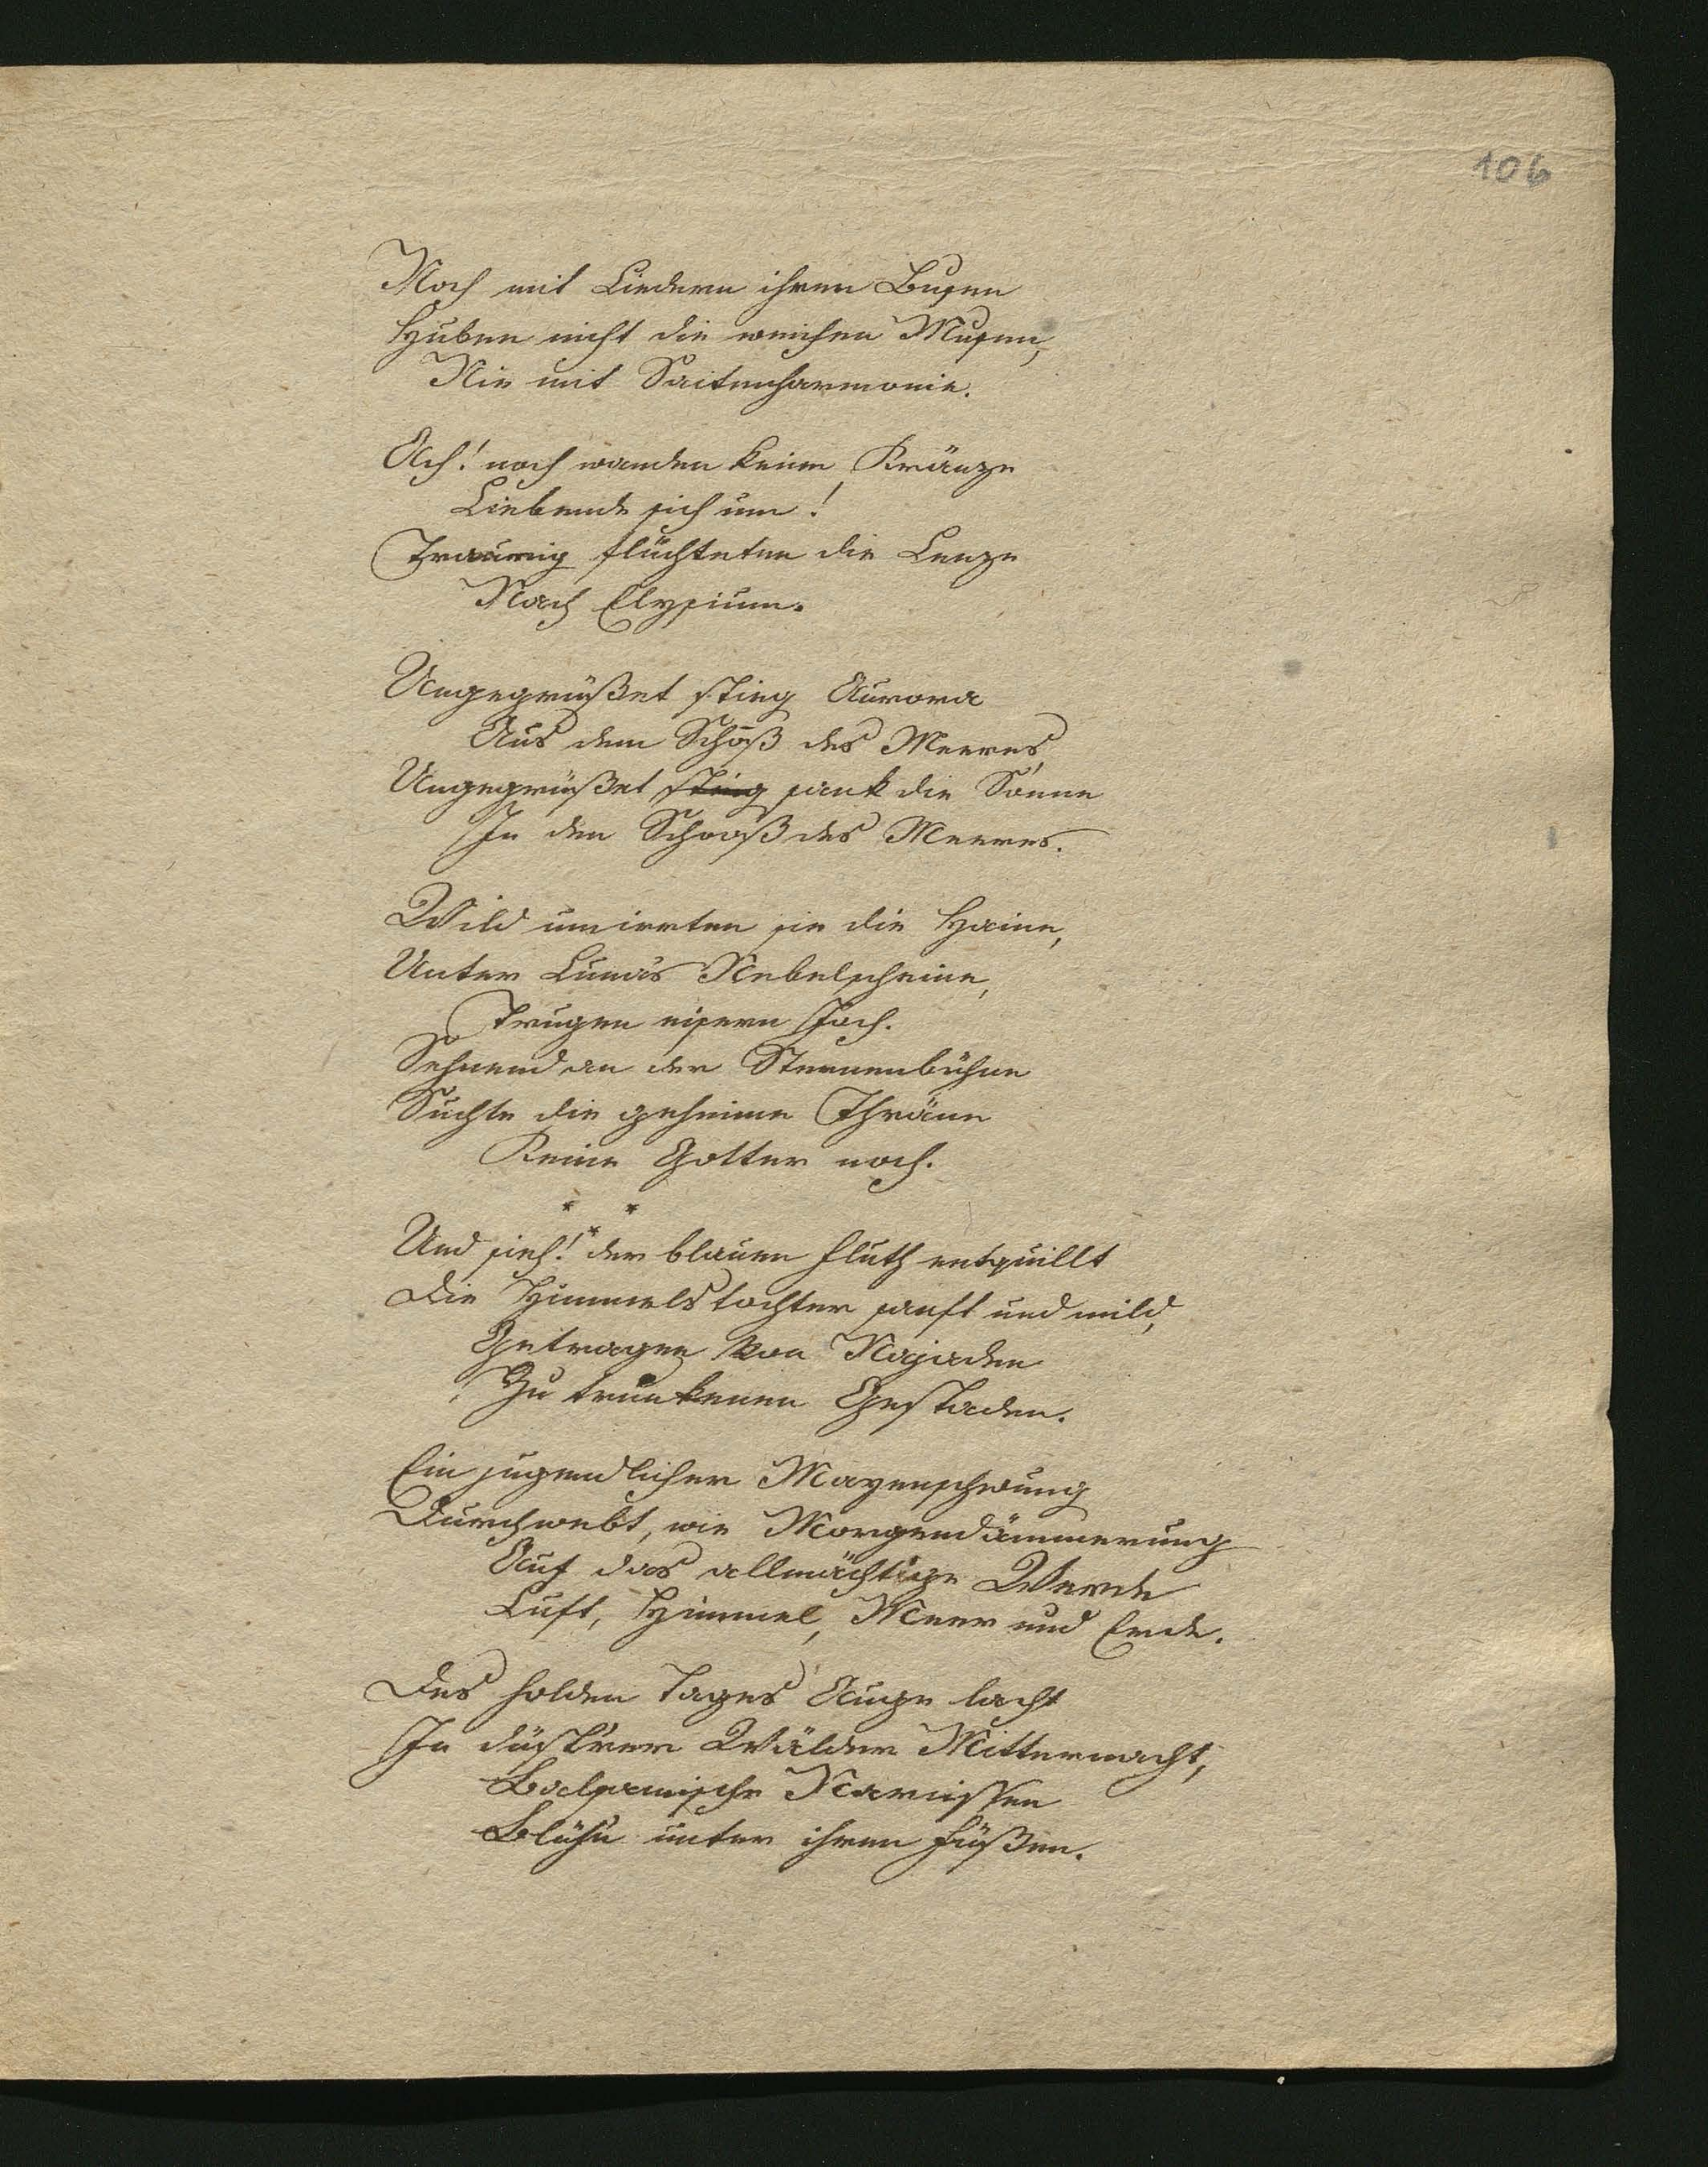 106
Noch mit Liedern ihren Busen
Huben nicht die weichen Musen,
Nie mit Saitenharmonie.
Ach! noch wanden keine Kränze
Liebende sich um!
Traurig flüchteten die Lenze
Nach Elysium.
Ungegrüßet stieg Aurora
Aus dem Schooß des Meeres,
Ungegrüßet stieg sank die Sonne
In den Schooß des Meeres.
Wild umirrten sie die Haine,
Unter Lunas Nebelscheine,
Trugen eisern Joch.
Sehnend an der Sternenbühne
Suchte die geheime Thräne
Keine Götter noch.
* * *
Und sieh! der blauen Fluth entquillt
Die Himmelstochter sanft und mild,
Getragen von Najaden
Zu trunkenen Gestaden.
Ein jugendlicher Mayenschwung
Durchwebt, wie Morgendämmerung
Auf das allmächtige Werde
Luft, Himmel, Meer und Erde.
Des holden Tages Auge lacht
In düstrer Wälder Mitternacht,
Balsamische Narcissen
Blühn unter ihren Füßen.